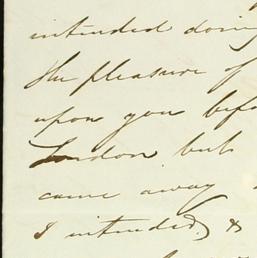 intended doing
the pleasure of
upon you befo
London but
came away
I intended, &